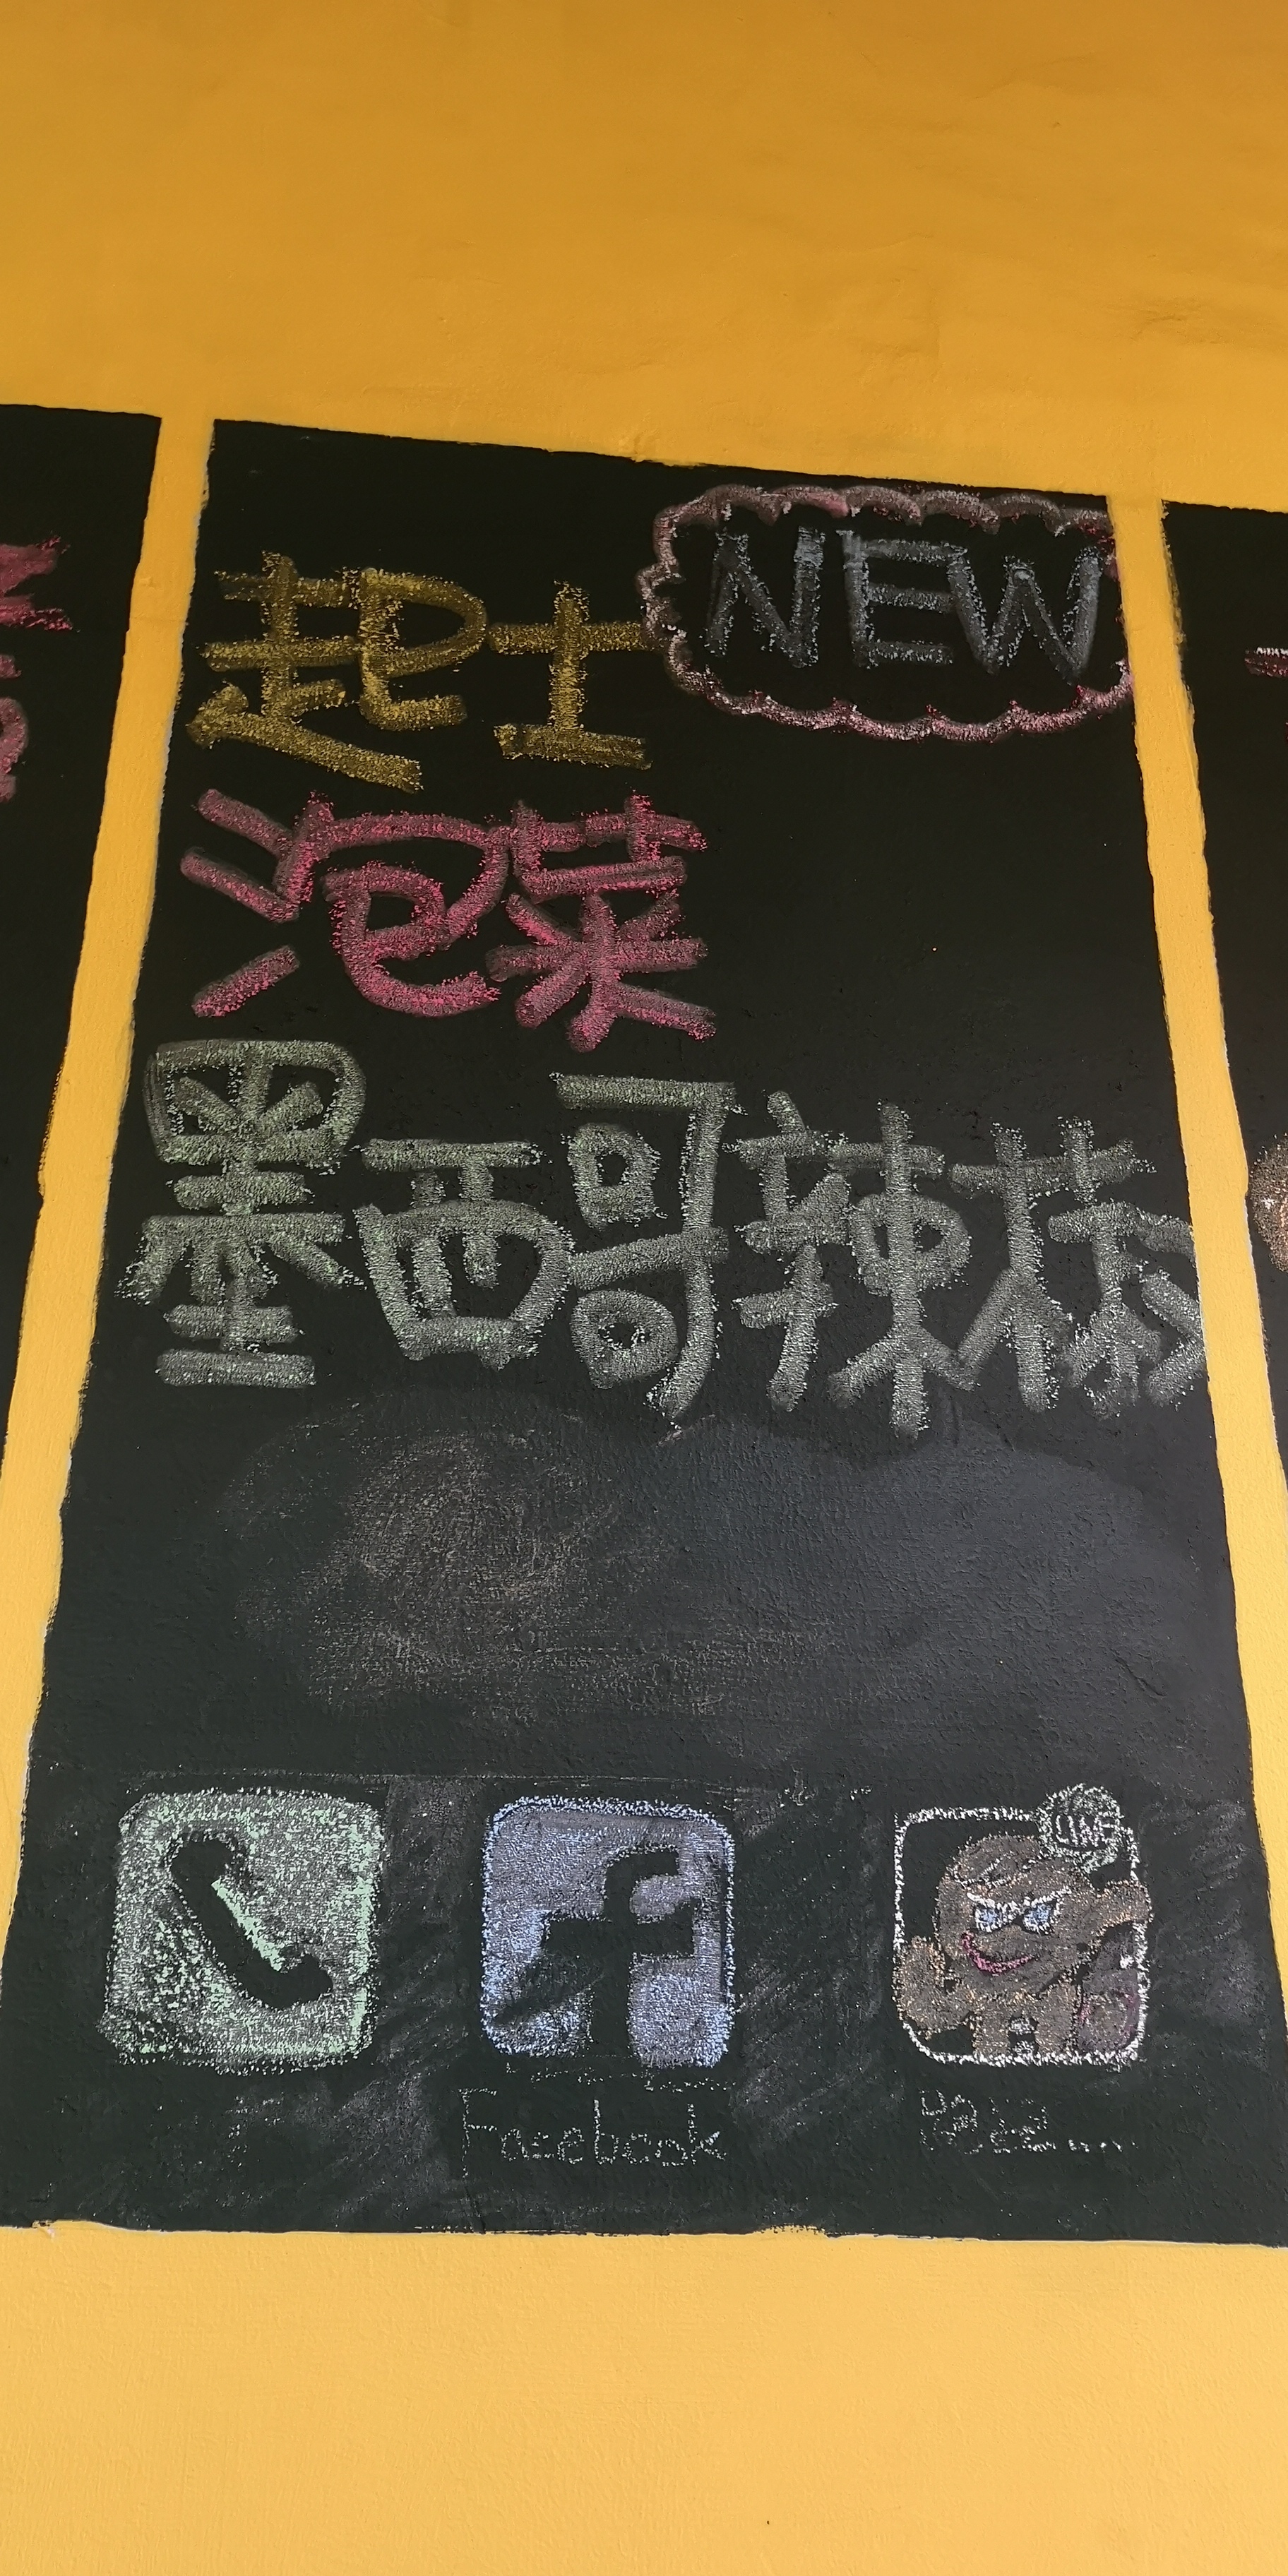 起士 NEW
泡菜
墨西哥辣椒
LINE
Facebook